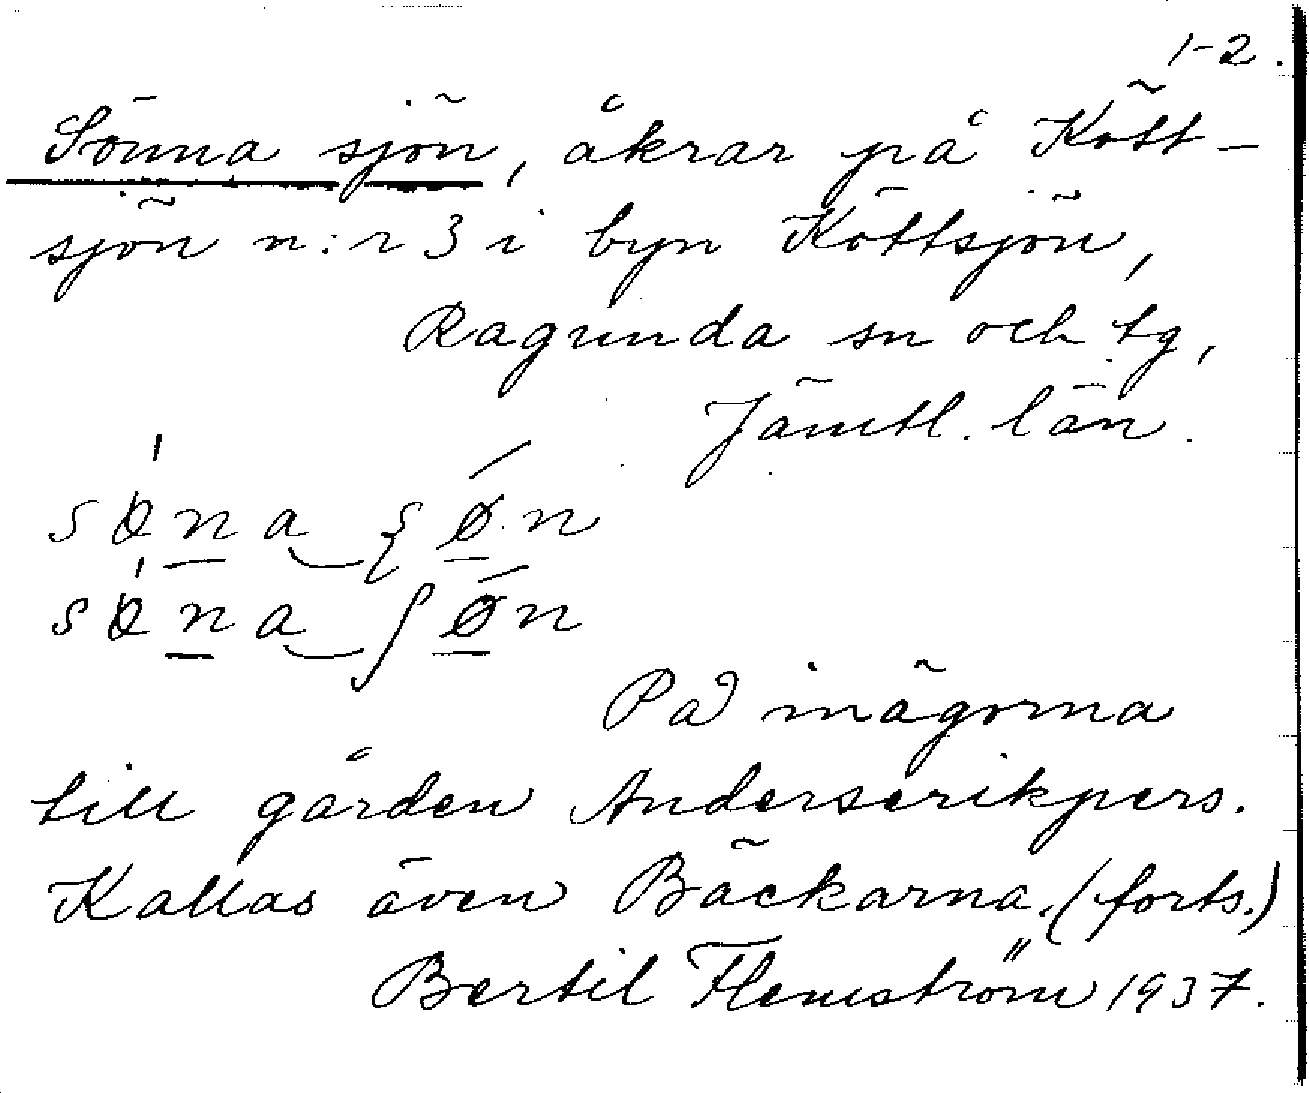 1-2.
Sönna sjön, åkrar på Kött-
sjön n:r 3 i byn Köttsjön,
Ragunda sn och tg,
Jämtl. län.
På inägorna
till gården Anderserikpers.
Kallas även Bäckarna. (forts.)
Bertil Flemström 1937.